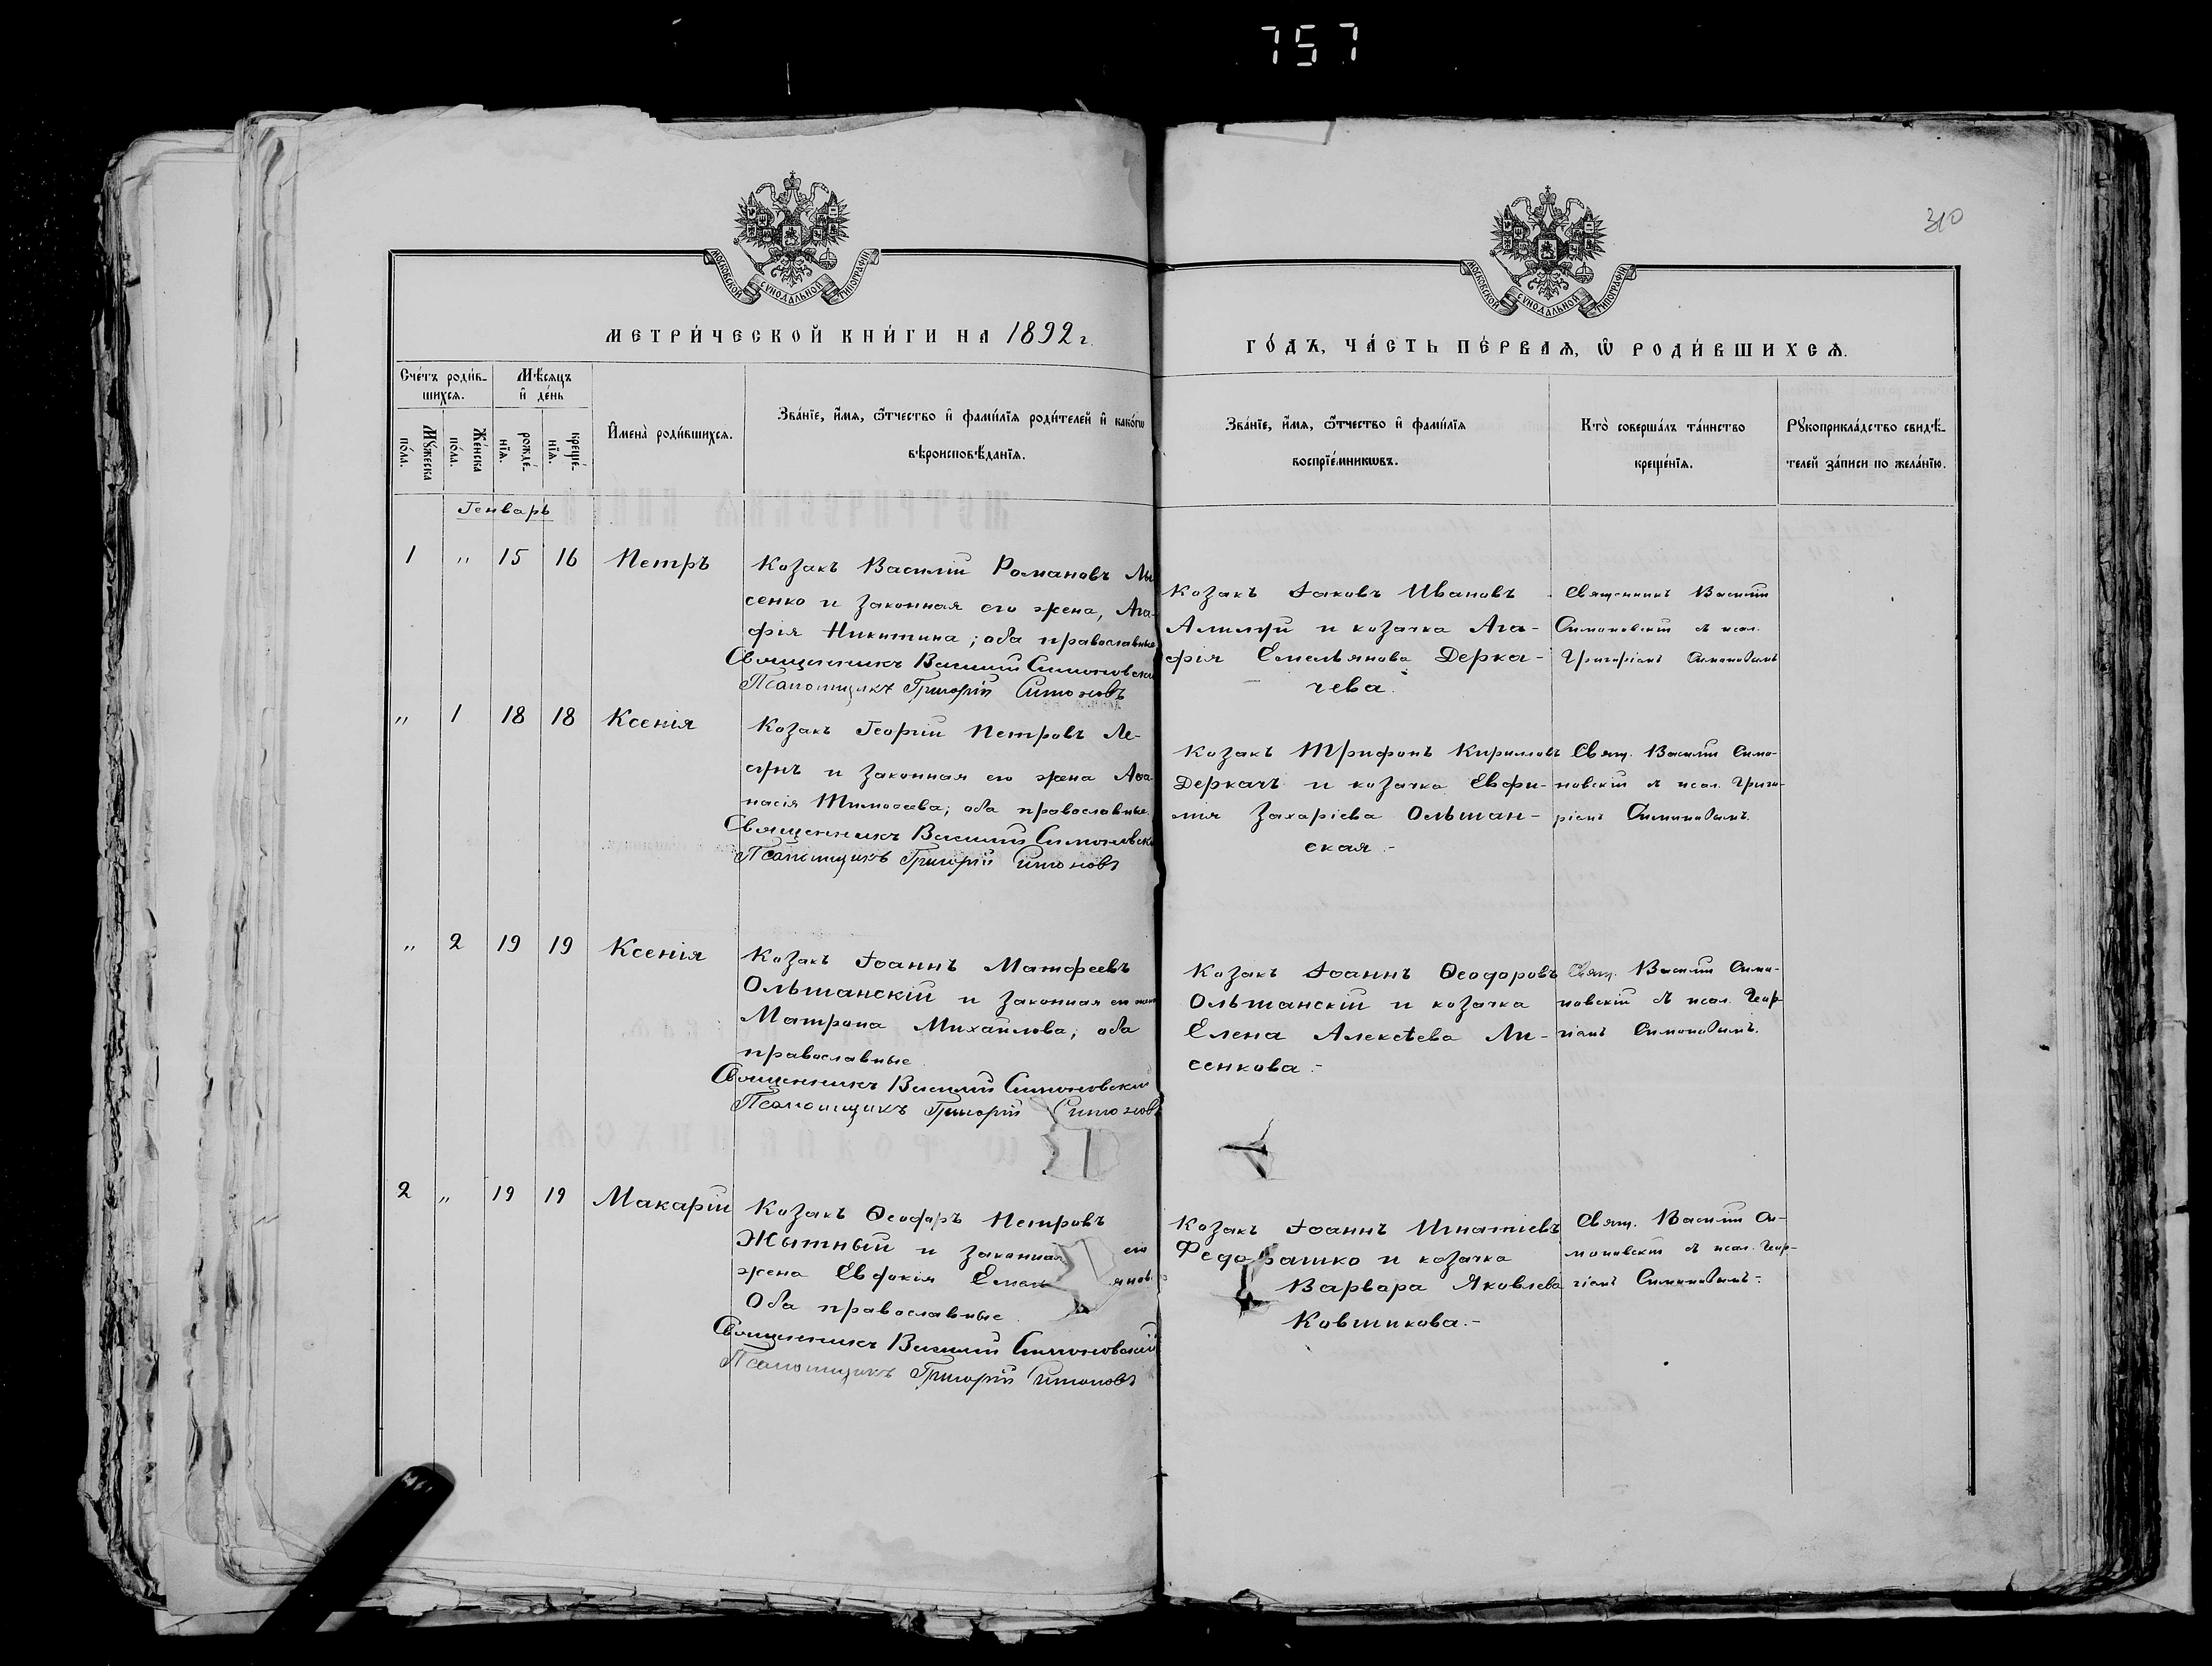 757
310
МОСКОВСКОЙ СѴНОДАЛЬНОЙ ТИПОГРАФІИ
МОСКОВСКОЙ СѴНОДАЛЬНОЙ ТИПОГРАФІИ
МЕТРИ́ЧЕСКОЙ КНИ́ГИ НА 1892 г.
ГО́ДЪ, ЧА́СТЬ ПЕ́РВАѦ, Ѡ҆ РОДИ́ВШИХСѦ.
Счéтъ роди́в-
шихсѧ.
Мѣ́сѧцъ
и҆ де́нь
Мꙋ́жеска
по́ла.
Же́нска
по́ла.
рожде́-
нїѧ.
креще́-
нїѧ.
И҆мена̀ роди́вшихсѧ.
Зва́нїе, и҆́мѧ, ѻ҆́тчество и҆ фами́лїѧ роди́телей и҆ како́гѡ
вѣроисповѣ́данїѧ.
Зва́нїе, и҆́мѧ, ѻ҆́тчество и҆ фами́лїѧ
воспрїе́мникѡвъ.
Кто̀ соверша́лъ та́инство
креще́нїѧ.
Рꙋкоприкла́дство свидѣ́-
телей за́писи по жела́нїю.
Генварь
1 " 15 16 Петръ
Козакъ Василій Романовъ Лы
сенко и законная его жена, Ага-
фія Никитина; оба православные
Священникъ Василий Симоновскій
Псаломщикъ Григорій Симоновъ
Козакъ Іаковъ Ивановъ
и козачка Ага-
фія Емельянова Дерка-
чева.
Священникъ Василій
Симоновскій съ псал.
Григоріемъ Симоновымъ
" 1 18 18 Ксенія
Козакъ Георгій Петровъ Ле-
и законная его жена Аѳа-
насія Тимоѳеева; оба православные.
Священникъ Василий Симоновскій
Псаломщикъ Григорій Симоновъ
Козакъ Трифонъ Кириловъ
Деркачъ и козачка Евфи-
мія Захаріева Ольшан-
ская.-
Свящ. Василій Симо-
новскій съ псал. Григо-
ріемъ Симоновымъ.
" 2 19 19 Ксенія
Козакъ Іоаннъ Матфеевъ
Ольшанскій и законная его жена
Матрона Михайлова, оба
православные
Священникъ Василий Симоновский
Псаломщикъ Григорій Симоновъ
Козакъ Іоаннъ Ѳеодоровъ
Ольшанскій и козачка
Елена Алексѣева Ли-
сенкова.-
Свящ. Василій Симо-
новскій съ псал.
Симоновымъ.
2 " 19 19 Макарій
Козакъ Ѳеодоръ Петровъ
Жытный и законная его
жена Евдокія
Оба православные
Священникъ Василий Симоновский
Псаломщикъ Григорій Симоновъ
Козакъ Іоаннъ Игнатіевъ
и козачка
Варвара Яковлева
Ковшикова.-
Свящ. Василій Си-
моновскій съ псал.
Симоновымъ.-